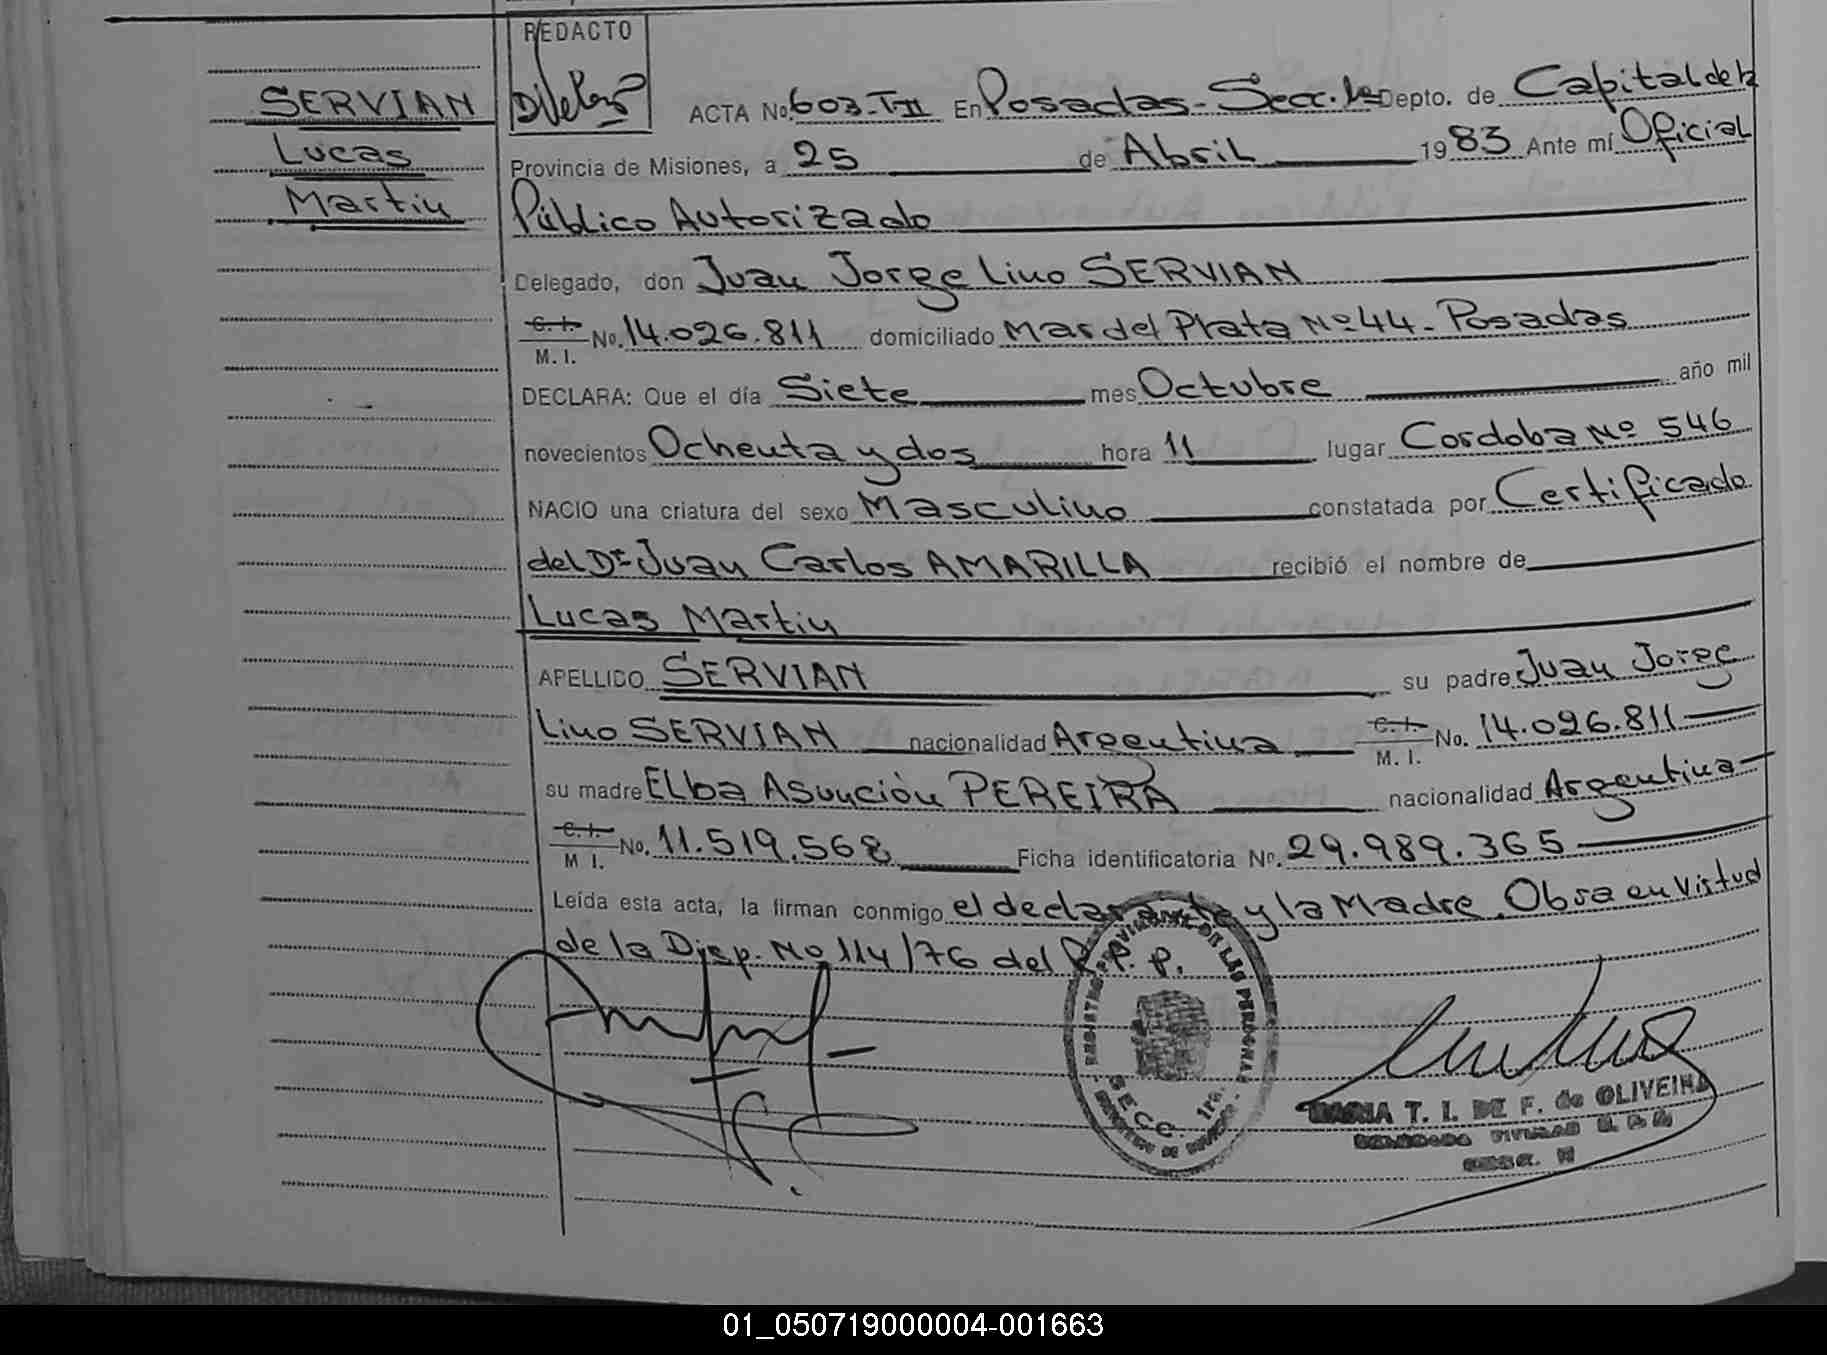 REDACTO
SERVIAN
Lucas
Martin
ACTA No. 603-T-II En Posadas - Secc. 1a Depto. de Capital de la
Provincia de Misiones, a 25 de Abril 1983 Ante mí Oficial
Público Autorizado
Delegado, don Juan Jorge Lino SERVIAN
C. I. M. I. No. 14.026.811 domiciliado Mar del Plata Nº 44 - Posadas
DECLARA: Que el día Siete mes Octubre año mil
novecientos Ochenta y dos hora 11 lugar Cordoba Nº 546
NACIO una criatura del sexo Masculino constatada por Certificado
del Dr. Juan Carlos AMARILLA recibió el nombre de
Lucas Martin
APELLIDO SERVIAN su padre Juan Jorge
Lino SERVIAN nacionalidad Argentina C. I. M. I. No. 14.026.811
su madre Elba Asunción PEREIRA nacionalidad Argentina
C. I. M I. No. 11.519.568 Ficha identificatoria No. 29.989.365
Leída esta acta, la firman conmigo el declarante y la Madre. Obra en Virtud
de la Disp. Nº 114/76 del R. P. P.
REGISTRO PROVINCIAL DE LAS PERSONAS
SECC. 1ra.
MARIA T. I. DE F. de OLIVEIRA
01_050719000004-001663